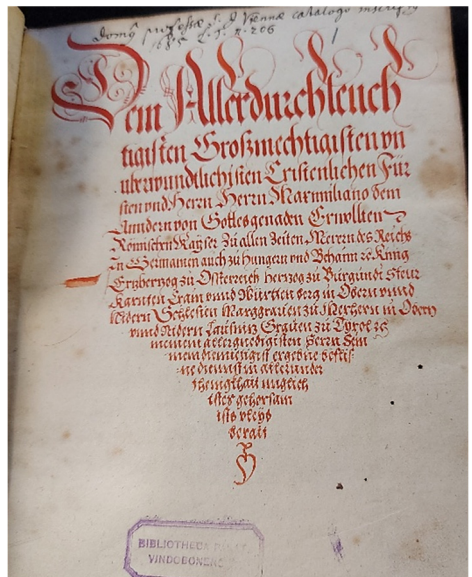 Domus professæ S. J. Viennæ catalogo inscript
Dem Allerdurchleuch
tigisten Großmechtigisten vn
uberwundtlichisten Cristenlichen Für
sten vnd Herrn Herrn Maxmiliano dem
Anndern von Gottes genaden Erwöllten
Römischen Kayser Zu allen Zeiten Merern des Reichs
In Germanien auch zu Hungern vnd Beham ꝛc König
Ertzhertzog zu Osterreich Hertzog zu Burgundi Steur
Karnten Crain vnnd Wirtten berg in Obern vnnd
Nidern Schlesien Marggrauen zu Merhern in Obern
vnnd Nidern Lausnitz Grauen zu Tyrol ꝛc
meinem allergnedigisten Herrn Sein
mein diemietigist ergebne beflis
ne dienst in aller vnder
thenigkhait muglich
ister gehorsam
ists vleys
berait
BIBLIOTHECA PALAT.
VINDOBONENSIS